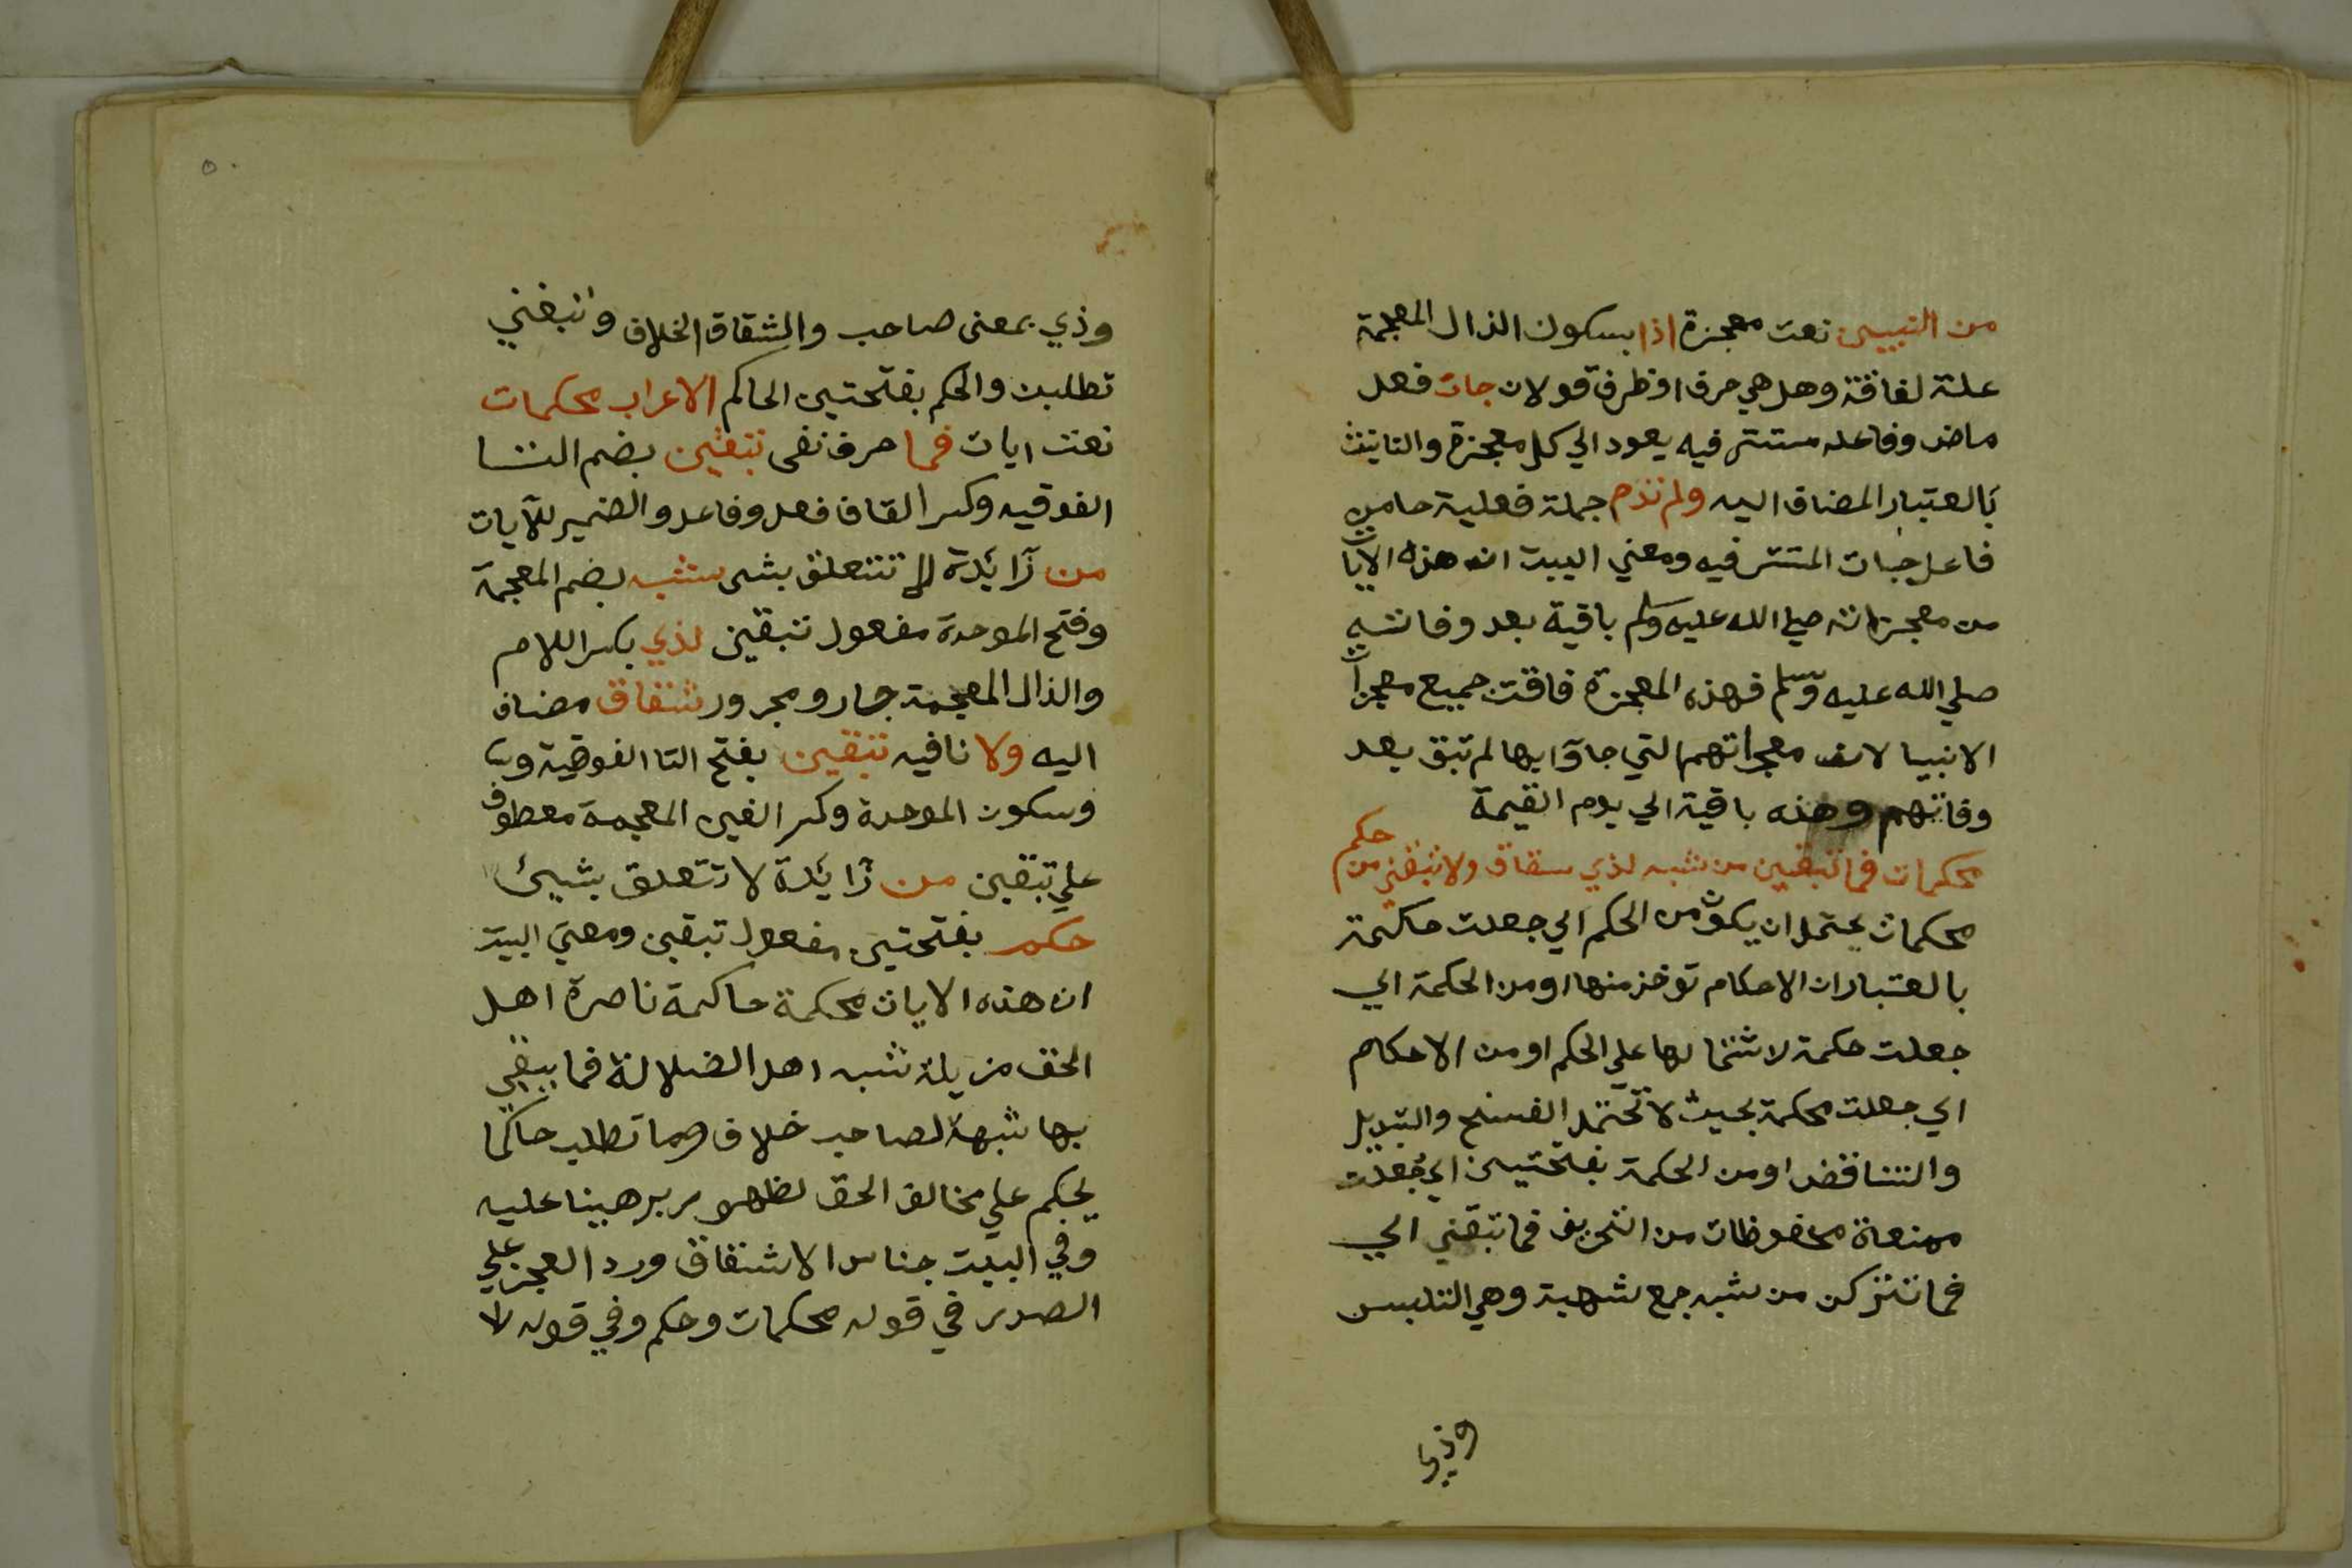 من النبيين نعت معجزة اذا بسكون الذال المعجمة
علة لفاقة وهل هي حرف او ظرف قولان جات فعل
ماض وفاعله مستتر فيه يعود الي كل معجزة والتانيث
بالعتبار المضاف اليه ولم تدم جملة فعلية حا من
فاعل جات المتتر فيه ومعني البيت ان هذه الايات
من معجزاته صلي الله عليه وسلم باقية بعد وفاته
صلي الله عليه وسلم فهذه المعجزة فاقت جميع معجزات
الانبيا لان معجراتهم التي جاؤا بها لم تبق بعد
وفاتهم وهذه باقية الي يوم القيمة
محكمات فما تبقين من شبه لذي سقاق ولا تبغين من حكم
محكمات يحتمل ان يكون من الحكم اي جعلت حاكمة
بالعتبار ان الاحكام توخذ منها او من الحكمة اي
جعلت حكمة لاشتمالها علي الحكم او من الاحكام
اي جعلت محكمة بحيث لا تحتمل الفسخ والتبديل
والتناقض او من الحكمة بفتحتين اي جعلت
ممنعة محفوظات من التحريف فما تبقني اي
فما تتركن من شبه جمع شهبة وهي التلبس
وذي
٥٠
وذي بمعنى صاحب والشقاق الخلاف وتبغني
تطلبن والحكم بفتحتين الحاكم الاعراب محكمات
نعت ايات فما حرف نفى تبقين بضم التا
الفوقيه وكسر القاف فعل وفاعل والضمير للآيات
من زائدة لا تتعلق بشى شبه بضم المعجمة
وفتح الموحدة مفعول تبقين لذي بكسر اللام
والذال المعجمة جار ومجرور شقاق مضاف
اليه ولا نافيه تبقين بفتح التا الفوقية
وسكون الموحدة وكسر الغين المعجمة معطوف
علي تبقين من زائدة لا تتعلق بشيئ
حكم بفتحتين مفعول تبقين ومعني البيت
ان هذه الايات محكمة حاكمة ناصرة اهل
الحق مزيلة شبه اهل الضلالة فما يبقي
بها شبهة لصاحب خلاف وما تطلب حاكما
يحكم علي مخالف الحق لظهور برهينا عليه
وفي البيت جناس الاشتقاق ورد العجز علي
الصدر في قوله محكمات وحكم وفي قوله لا